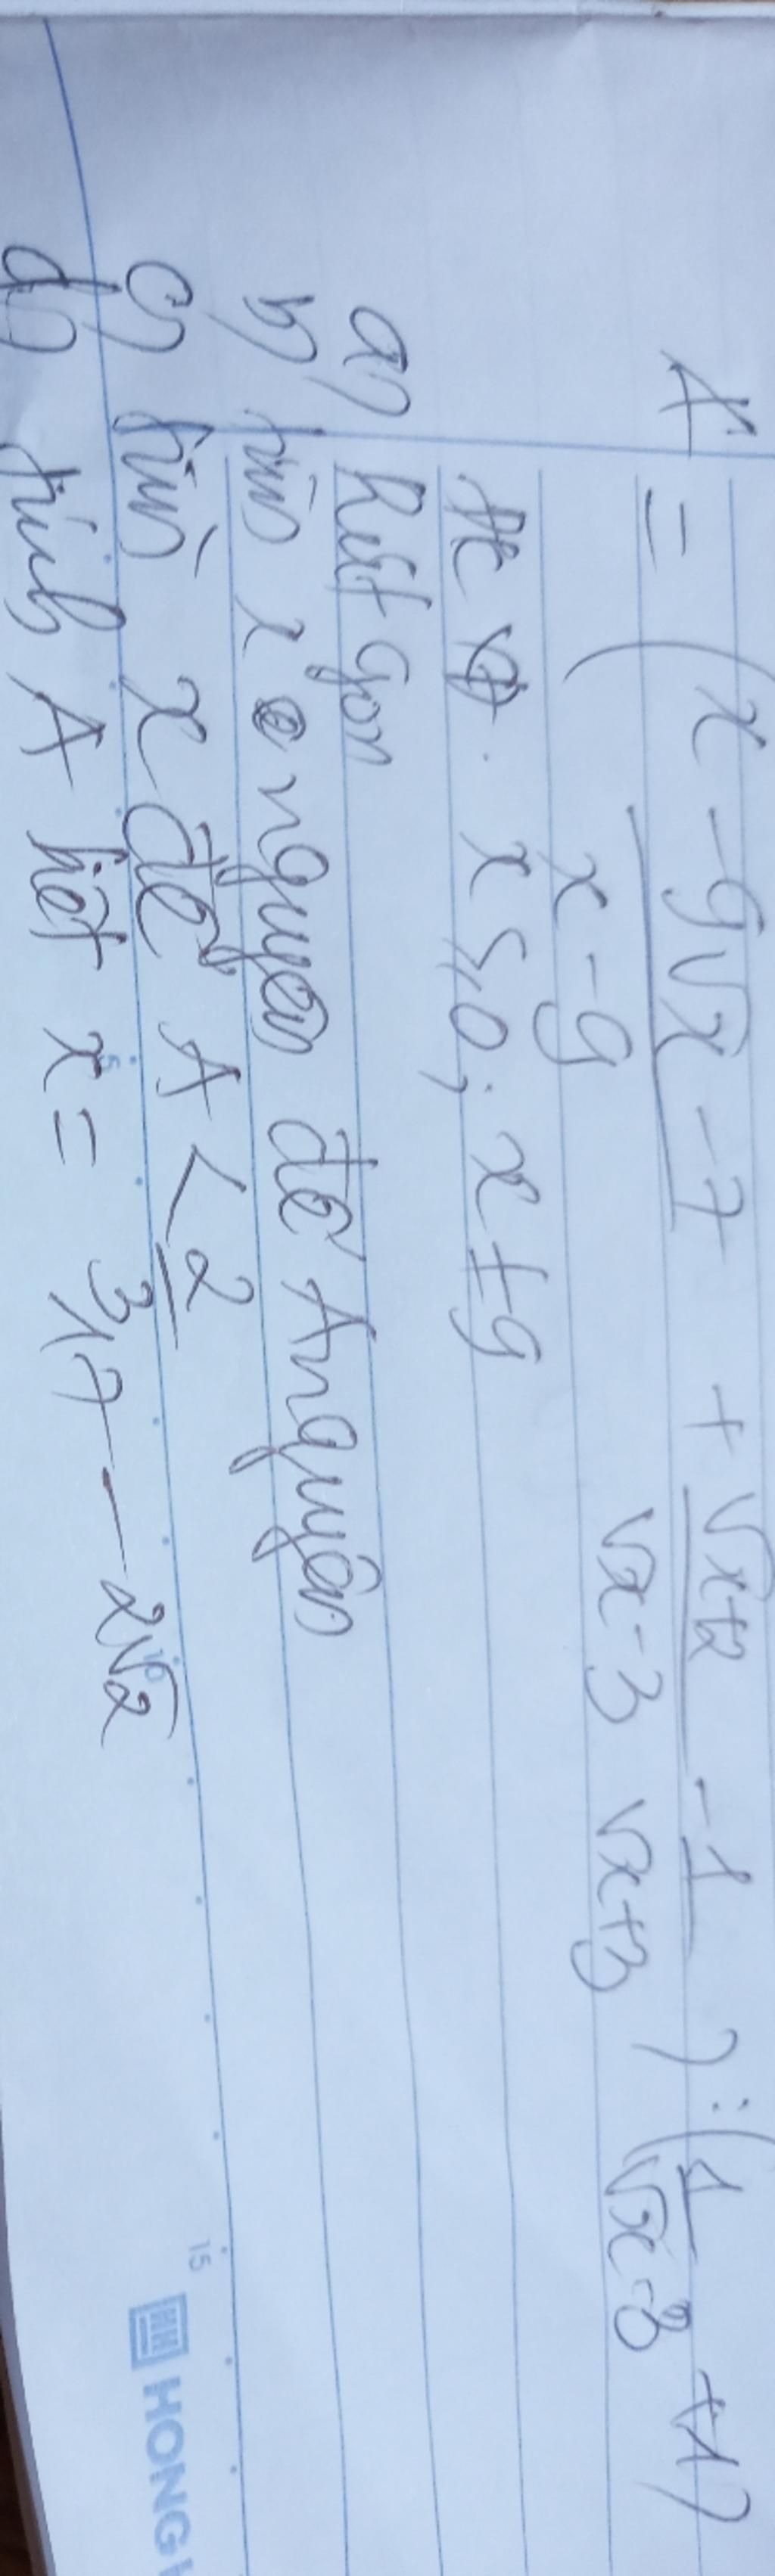 A = ( x - 9√x - 7 / x - 9 + √x+2 / √x - 3 - 1 / √x+3 ) : ( 1 / √x - 3 + 1 )
x ≥ 0 ; x ≠ 9
a) Rút gọn
b) tìm x nguyên để A nguyên
c) tìm x để A < 2/3
d) tính A biết x = 17 - 2√2
5
10
15
HH HONG